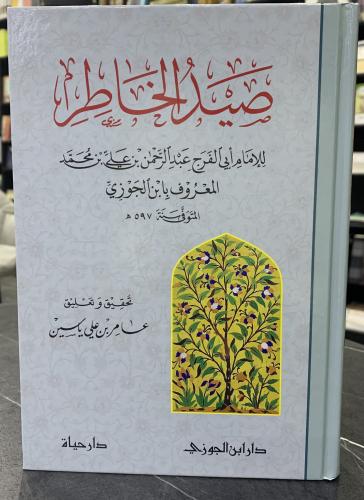 صَيْدُ الخَاطِرِ
للإمَام أبي الفَرَج عَبْد الرَّحمٰن بْن عَليّ بْن مُحَمَّد
المَعْرُوف بِابْن الجَوْزِيّ
المتَوفَّى سَنَة ٥٩٧ هـ
تحقيق وَتعليق
عَامِر بْن عَلي يَاسِين
دار ابن الجوزي
دار حياة